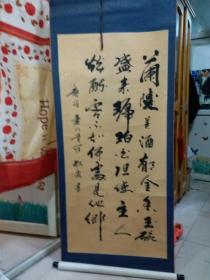 蘭陵美酒郁金香玉碗
盛来琥珀光但使主人
能酔客不知何處是他鄉
Hope